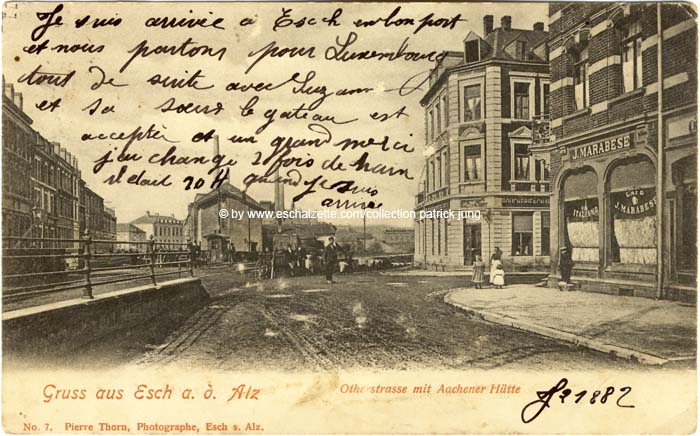 Je suis arrivée à Esch en bon port
et nous partons pour Luxembourg
tout de suite avec Suzanne
et sa sœur le gateau est
accepté et un grand merci
j'eu changé 2 fois de train
il était 20 H quand je suis
arrivée
© by www.eschalzette.com/collection patrick jung
J. MARABESE
CAFÉ
ITALIANO
J. MARABESE
Gruss aus Esch a. d. Alz
Otherstrasse mit Aachener Hütte
No. 7. Pierre Thorn, Photographe, Esch s. Alz.
1882